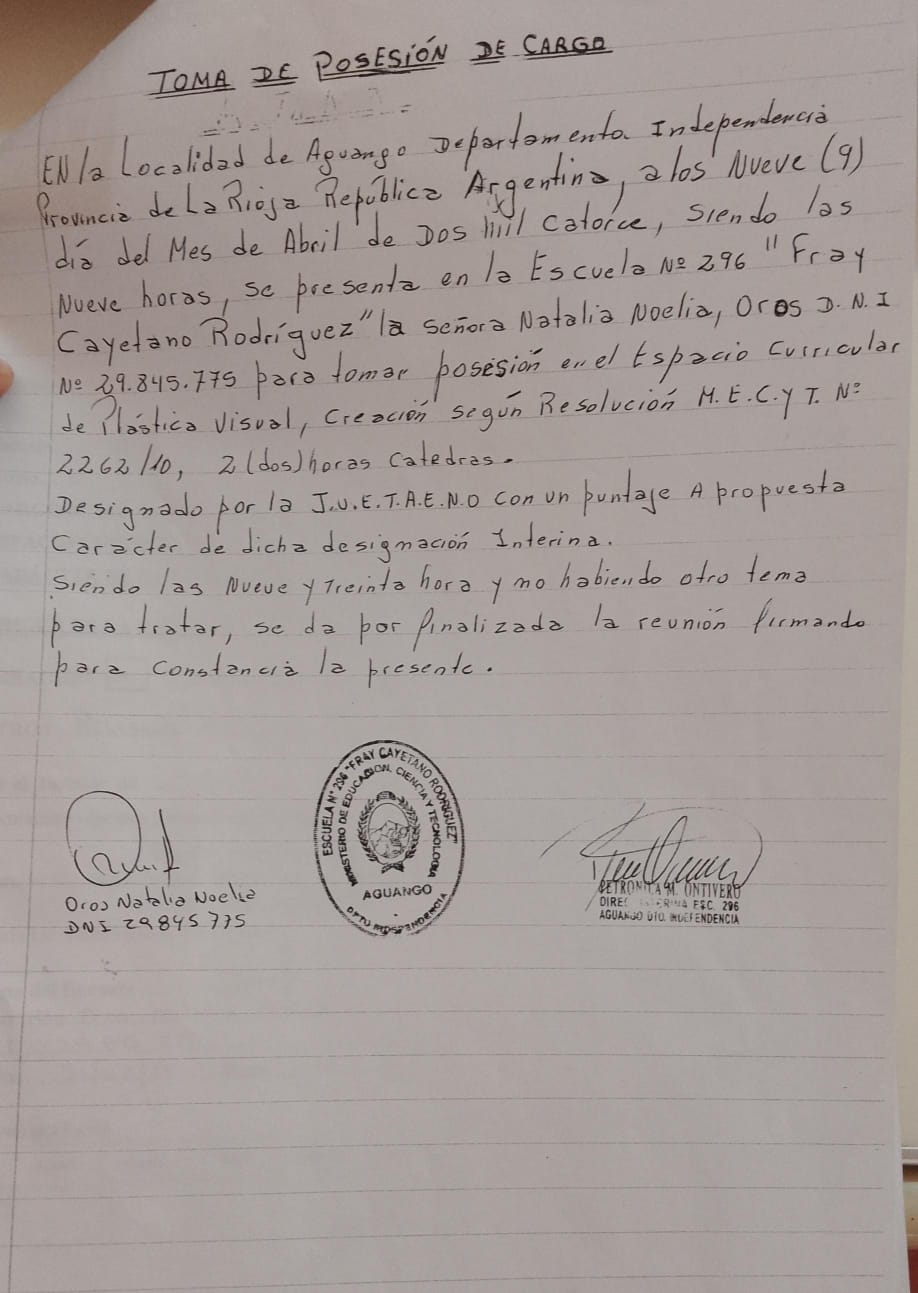 TOMA DE POSESIÓN DE CARGO
EN la Localidad de Aguango Departamento Independencia
Provincia de La Rioja República Argentina, a los Nueve (9)
día del Mes de Abril de Dos mil Catorce, siendo las
Nueve horas, se presenta en la Escuela Nº 296 "Fray
Cayetano Rodríguez" la señora Natalia Noelia, Oros D.N.I
Nº 29.845.775 para tomar posesión en el Espacio Curricular
de Plástica Visual, Creación según Resolución M.E.C.Y T. Nº
2262/10, 2 (dos) horas Catedras.
Designado por la J.U.E.T.A.E.N.O con un puntaje A propuesta
Carácter de dicha designación Interina.
Siendo las Nueve y Treinta hora y no habiendo otro tema
para tratar, se da por finalizada la reunión firmando
para Constancia la presente.
Oros Natalia Noelia
DNI 29845775
ESCUELA Nº 296 "FRAY CAYETANO RODRIGUEZ"
MINISTERIO DE EDUCACION, CIENCIA Y TECNOLOGIA
AGUANGO
DPTO INDEPENDENCIA
PETRONILA M. ONTIVERO
ESC. 296
AGUANGO DTO. INDEPENDENCIA